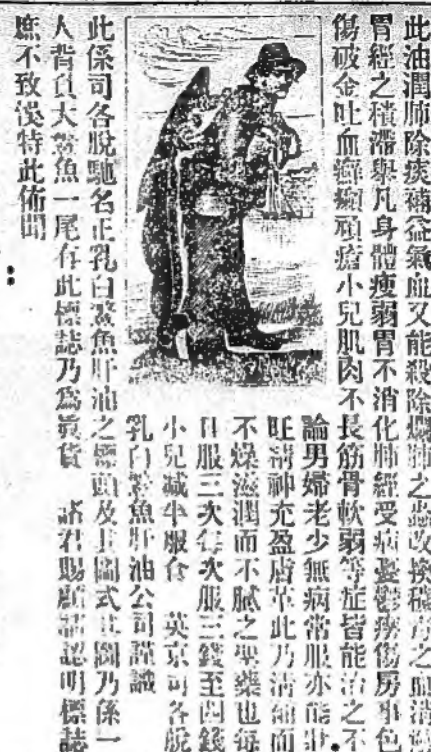 此油潤肺除痰補益氣血又能殺除爛肺之蟲改換穢毒之血消
胃經之積滯舉凡身體瘦弱胃不消化肺經受病憂鬱癆傷房事包
傷破金吐血癬癲頑瘡小兒肌肉不長筋骨軟弱等症皆能治之不
論男婦老少無病常服亦能壯
旺精神充盈膚革此乃清補而
不燥滋潤而不膩之聖藥也每
日服三次每次服三錢至四錢
小兒減半服食 英京司各脫
乳白鰵魚肝油公司謹識
此係司各脫馳名正乳白鰵魚肝油之標頭及其圖式其圖乃係一
人背負大鰵魚一尾有此標誌乃為真貨 諸君賜顧請認明標誌
庶不致悞特此佈聞